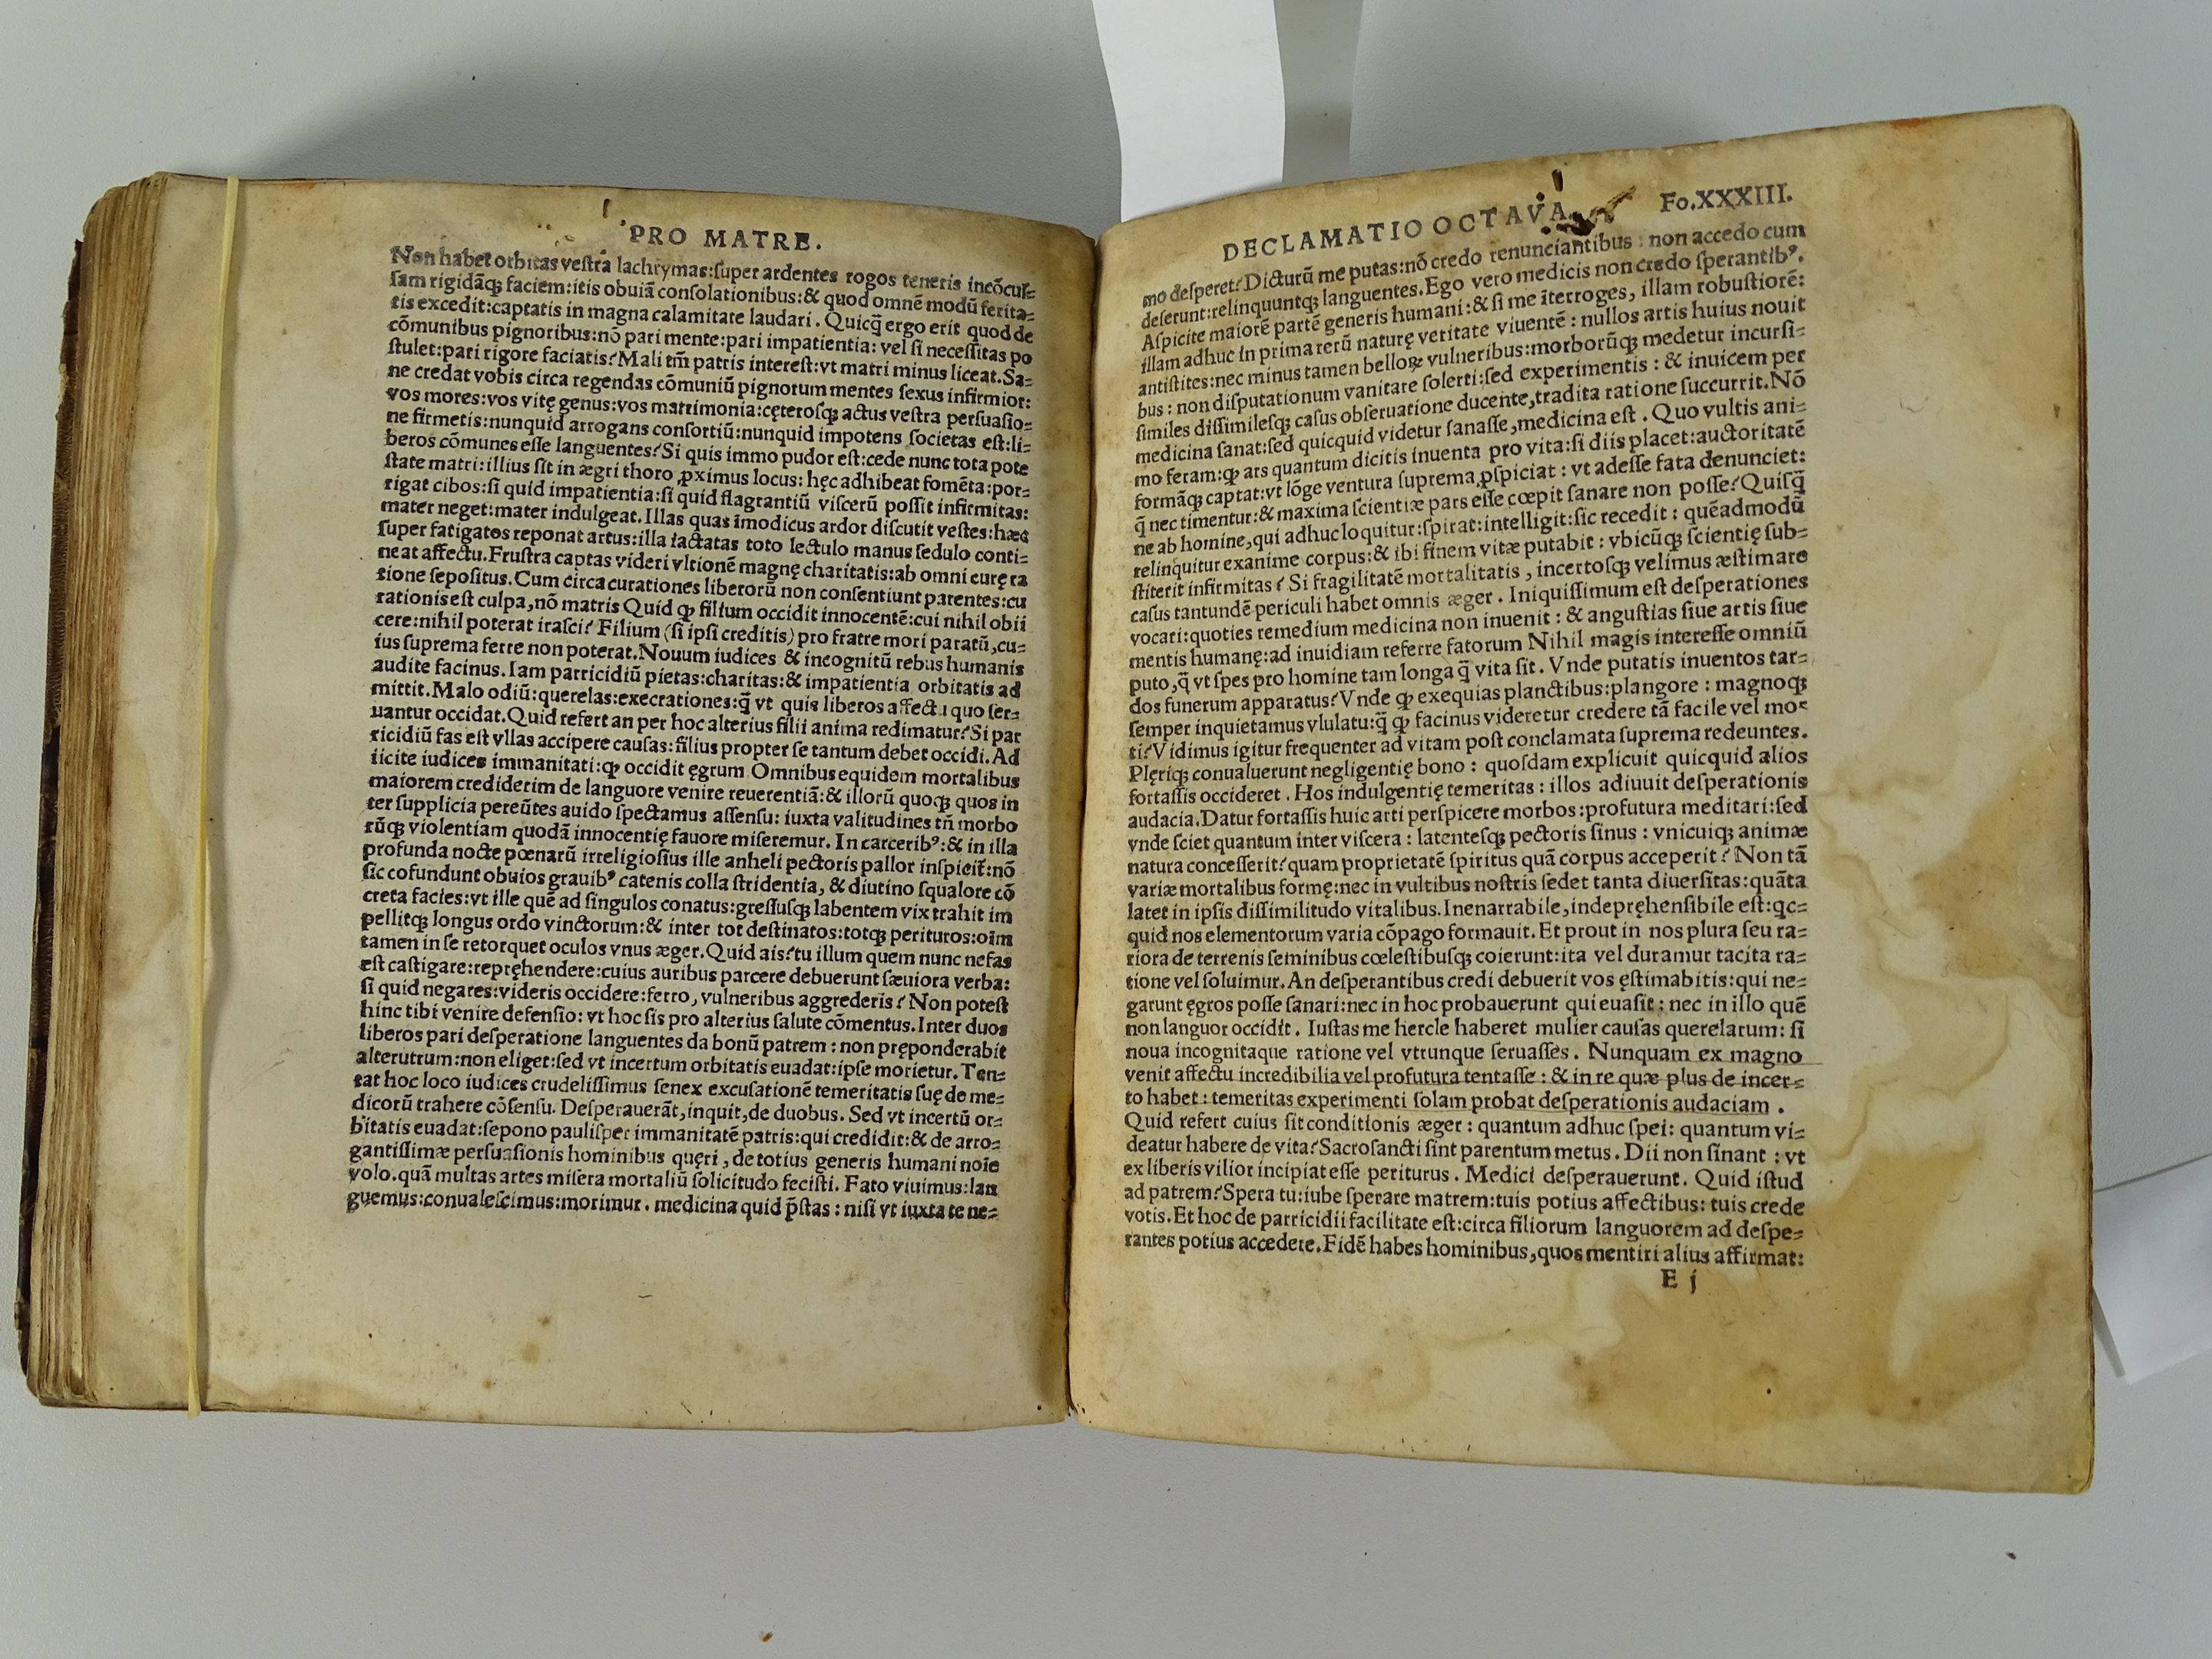 PRO MATRE.
Non habet orbitas veſtra lachrymas:ſuper ardentes rogos teneris incõcuſ-
ſam rigidãqꝫ faciem:itis obuiã conſolationibus:& quod omnẽ modũ ferita-
tis excedit:captatis in magna calamitate laudari. Quicq̃ ergo erit quod de
cõmunibus pignoribus:nõ pari mente:pari impatientia: vel ſi neceſſitas po
ſtulet:pari rigore faciatis? Mali tm̃ patris intereſt:vt matri minus liceat. Sa-
ne credat vobis circa regendas cõmuniũ pignorum mentes ſexus infirmior:
vos mores:vos vitę genus:vos matrimonia:cęteroſqꝫ actus veſtra perſuaſio-
ne firmetis:nunquid arrogans conſortiũ:nunquid impotens ſocietas eſt:li-
beros cõmunes eſſe languentes? Si quis immo pudor eſt:cede nunc tota pote
ſtate matri:illius ſit in ægri thoro ꝓximus locus: hęc adhibeat fomẽta:por-
rigat cibos:ſi quid impatientia:ſi quid flagrantiũ viſcerũ poſſit infirmitas:
mater neget:mater indulgeat. Illas quas ĩmodicus ardor diſcutit veſtes:hæc
ſuper fatigatos reponat artus:illa iactatas toto lectulo manus ſedulo conti-
neat affectu. Fruſtra captas videri vltionẽ magnę charitatis:ab omni curę ra
tione ſepoſitus. Cum circa curationes liberorũ non conſentiunt parentes:cu
rationis eſt culpa, nõ matris Quid ꝙ filium occidit innocentẽ:cui nihil obii
cere:nihil poterat iraſci? Filium (ſi ipſi creditis) pro fratre mori paratũ, cu-
ius ſuprema ferre non poterat. Nouum iudices & incognitũ rebus humanis
audite facinus. Iam parricidiũ pietas:charitas:& impatientia orbitatis ad
mittit. Malo odiũ:querelas:execrationes:q̃ vt quis liberos affectu quo ſer-
uantur occidat. Quid refert an per hoc alterius filii anima redimatur? Si par
ricidiũ fas eſt vllas accipere cauſas: filius propter ſe tantum debet occidi. Ad
iicite iudices immanitati:ꝙ occidit ęgrum Omnibus equidem mortalibus
maiorem crediderim de languore venire reuerentiã:& illorũ quoqꝫ quos in
ter ſupplicia pereũtes auido ſpectamus aſſenſu: iuxta valitudines tñ morbo
rũqꝫ violentiam quodã innocentię fauore miſeremur. In carceribꝰ:& in illa
profunda nocte pœnarũ irreligioſius ille anheli pectoris pallor inſpicit̃:nõ
ſic cofundunt obuios grauibꝰ catenis colla ſtridentia, & diutino ſqualore cõ
creta facies:vt ille quẽ ad ſingulos conatus:greſſuſqꝫ labentem vix trahit im
pellitqꝫ longus ordo vinctorum:& inter tot deſtinatos:totqꝫ perituros:oĩm
tamen in ſe retorquet oculos vnus æger. Quid ais? tu illum quem nunc nefas
eſt caſtigare:repręhendere:cuius auribus parcere debuerunt ſæuiora verba:
ſi quid negares:videris occidere:ferro, vulneribus aggrederis? Non poteſt
hinc tibi venire defenſio: vt hoc ſis pro alterius ſalute cõmentus. Inter duos
liberos pari deſperatione languentes da bonũ patrem: non pręponderabit
alterutrum:non eliget:ſed vt incertum orbitatis euadat:ipſe morietur. Ten-
tat hoc loco iudices crudeliſſimus ſenex excuſationẽ temeritatis ſuę de me-
dicorũ trahere cõſenſu. Deſperauerãt, inquit, de duobus. Sed vt incertũ or-
bitatis euadat:ſepono pauliſper immanitatẽ patris:qui credidit:& de arro-
gantiſſimæ perſuaſionis hominibus quęri, de totius generis humani noĩe
volo. quã multas artes miſera mortaliũ ſolicitudo feciſti. Fato viuimus:lan
guemus:conualeſcimus:morimur. medicina quid p̃ſtas: niſi vt iuxta te ne-
DECLAMATIO OCTAVA. Fo.XXXIII.
mo deſperet? Dicturũ me putas:nõ credo renunciantibus: non accedo cum
deſerunt:relinquuntqꝫ languentes. Ego vero medicis non credo ſperantibꝰ.
Aſpicite maiorẽ partẽ generis humani:& ſi me ĩterroges, illam robuſtiorẽ:
illam adhuc in prima rerũ naturę veritate viuentẽ: nullos artis huius nouit
antiſtites:nec minus tamen belloꝝ vulneribus:morborũqꝫ medetur incurſi-
bus: non diſputationum vanitate ſolerti:ſed experimentis: & inuicem per
ſimiles diſſimileſqꝫ caſus obſeruatione ducente, tradita ratione ſuccurrit. Nõ
medicina ſanat:ſed quicquid videtur ſanaſſe, medicina eſt. Quo vultis ani-
mo feram:ꝙ ars quantum dicitis inuenta pro vita:ſi diis placet:auctoritatẽ
formãqꝫ captat:vt lõge ventura ſuprema ꝓſpiciat: vt adeſſe fata denunciet:
q̃ nec timentur:& maxima ſcientiæ pars eſſe cœpit ſanare non poſſe? Quiſq̃
ne ab homine, qui adhuc loquitur:ſpirat:intelligit:ſic recedit: quẽadmodũ
relinquitur exanime corpus:& ibi finem vitæ putabit: vbicũqꝫ ſcientię ſub-
ſtiterit infirmitas? Si fragilitatẽ mortalitatis, incertoſqꝫ velimus æſtimare
caſus tantundẽ periculi habet omnis æger. Iniquiſſimum eſt deſperationes
vocari:quoties remedium medicina non inuenit: & anguſtias ſiue artis ſiue
mentis humanę:ad inuidiam referre fatorum Nihil magis intereſſe omniũ
puto, q̃ vt ſpes pro homine tam longa q̃ vita ſit. Vnde putatis inuentos tar-
dos funerum apparatus? Vnde ꝙ exequias planctibus:plangore: magnoqꝫ
ſemper inquietamus vlulatu:q̃ ꝙ facinus videretur credere tã facile vel mor
ti? Vidimus igitur frequenter ad vitam poſt conclamata ſuprema redeuntes.
Plęriqꝫ conualuerunt negligentię bono: quoſdam explicuit quicquid alios
fortaſſis occideret. Hos indulgentię temeritas: illos adiuuit deſperationis
audacia. Datur fortaſſis huic arti perſpicere morbos:profutura meditari:ſed
vnde ſciet quantum inter viſcera: latenteſqꝫ pectoris ſinus: vnicuiqꝫ animæ
natura conceſſerit? quam proprietatẽ ſpiritus quã corpus acceperit? Non tã
variæ mortalibus formę:nec in vultibus noſtris ſedet tanta diuerſitas:quãta
latet in ipſis diſſimilitudo vitalibus. Inenarrabile, indepręhenſibile eſt:qc-
quid nos elementorum varia cõpago formauit. Et prout in nos plura ſeu ra-
riora de terrenis ſeminibus cœleſtibuſqꝫ coierunt:ita vel duramur tacita ra-
tione vel ſoluimur. An deſperantibus credi debuerit vos ęſtimabitis:qui ne-
garunt ęgros poſſe ſanari:nec in hoc probauerunt qui euaſit: nec in illo quẽ
non languor occidit. Iuſtas me hercle haberet mulier cauſas querelarum: ſi
noua incognitaque ratione vel vtrunque ſeruaſſes. Nunquam ex magno
venit affectu incredibilia vel profutura tentaſſe: & in re quæ plus de incer-
to habet: temeritas experimenti ſolam probat deſperationis audaciam.
Quid refert cuius ſit conditionis æger: quantum adhuc ſpei: quantum vi-
deatur habere de vita? Sacroſancti ſint parentum metus. Dii non ſinant: vt
ex liberis vilior incipiat eſſe periturus. Medici deſperauerunt. Quid iſtud
ad patrem? Spera tu:iube ſperare matrem:tuis potius affectibus: tuis crede
votis. Et hoc de parricidii facilitate eſt:circa filiorum languorem ad deſpe-
rantes potius accedere. Fidẽ habes hominibus, quos mentiri alius affirmat:
E j